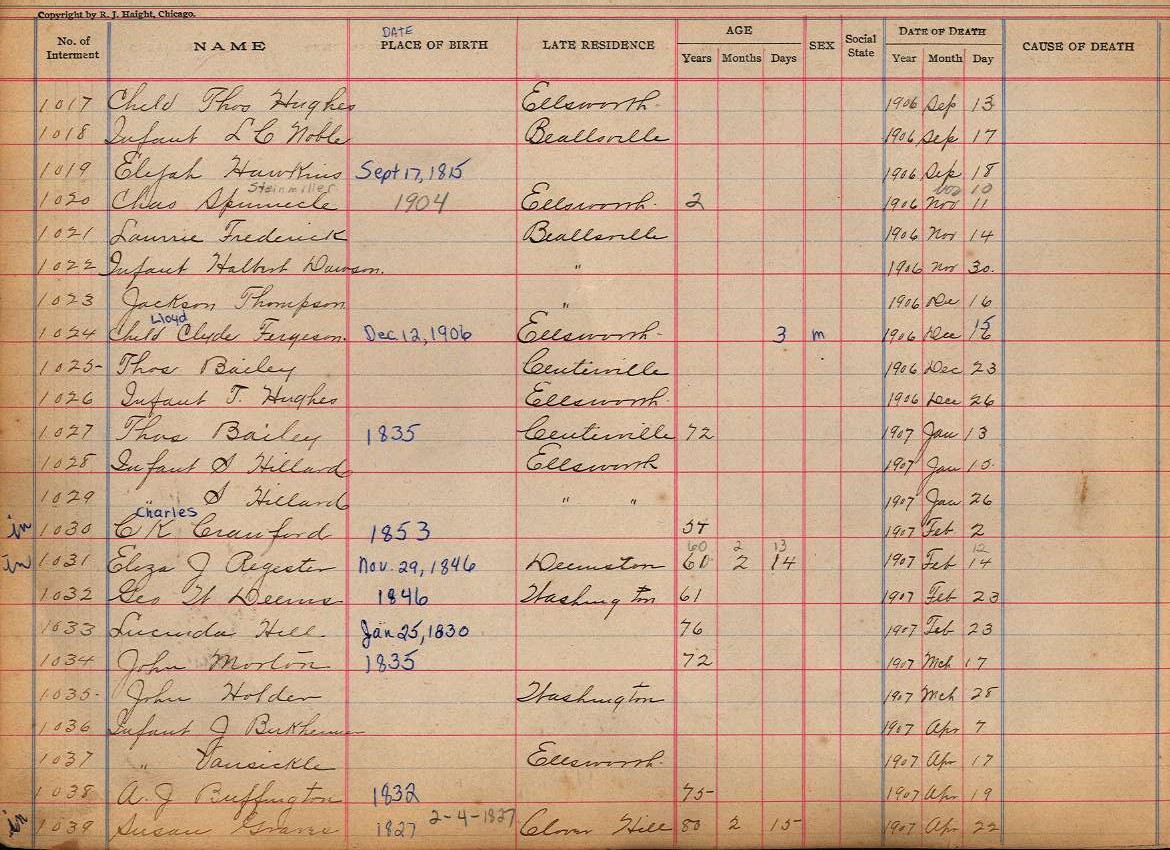 Copyright by R. J. Haight, Chicago.
No. of Interment NAME DATE PLACE OF BIRTH LATE RESIDENCE AGE Years Months Days SEX Social State DATE OF DEATH Year Month Day CAUSE OF DEATH
1017 Child Thos Hughes Ellsworth. 1906 Sep 13
1018 Infant L C Noble Beallsville 1906 Sep 17
1019 Elijah Hawkins Sept 17, 1815 1906 Sep 18
Steinmiller Nov 10
1020 Chas 1904 Ellsworth. 2 1906 Nov 11
1021 Laurrie Frederick Beallsville 1906 Nov 14
1022 Infant Halbert Dawson. " 1906 Nov 30.
1023 Jackson Thompson " 1906 De 16
Lloyd
1024 Child Clyde Fergeson. Dec. 12, 1906 Ellsworth. 3 m 1906 Dec 15
1025- Thos Bailey Centerville 1906 Dec 23
1026 Infant T. Hughes Ellsworth. 1906 Dec 26
1027 Thos Bailey 1835 Centerville 72 1907 Jan 13
1028 Infant S Hillard Ellsworth 1907 Jan 15.
1029 " S Hillard " " 1907 Jan 26
Charles
in 1030 C K Crawford 1853 54 1907 Feb. 2
60 2 13 12
in 1031 Eliza J Register Nov. 29, 1846 Deemston 60 2 14 1907 Feb 14
1032 Geo W Deems 1846 Washington 61 1907 Feb 23
1033 Lucinda Hill. Jan 25, 1830 76 1907 Feb 23
1034 John Morton 1835 72 1907 Mch 17
1035- John Holder Washington 1907 Mch 28
1036 Infant J 1907 Apr 7
1037 " Vansickle Ellsworth. 1907 Apr 17
1038 A. J Buffington 1832 75- 1907 Apr 19
in 1039 Susan Graves 1827 2-4-1827 Clover Hill 80 2 15- 1907 Apr 22